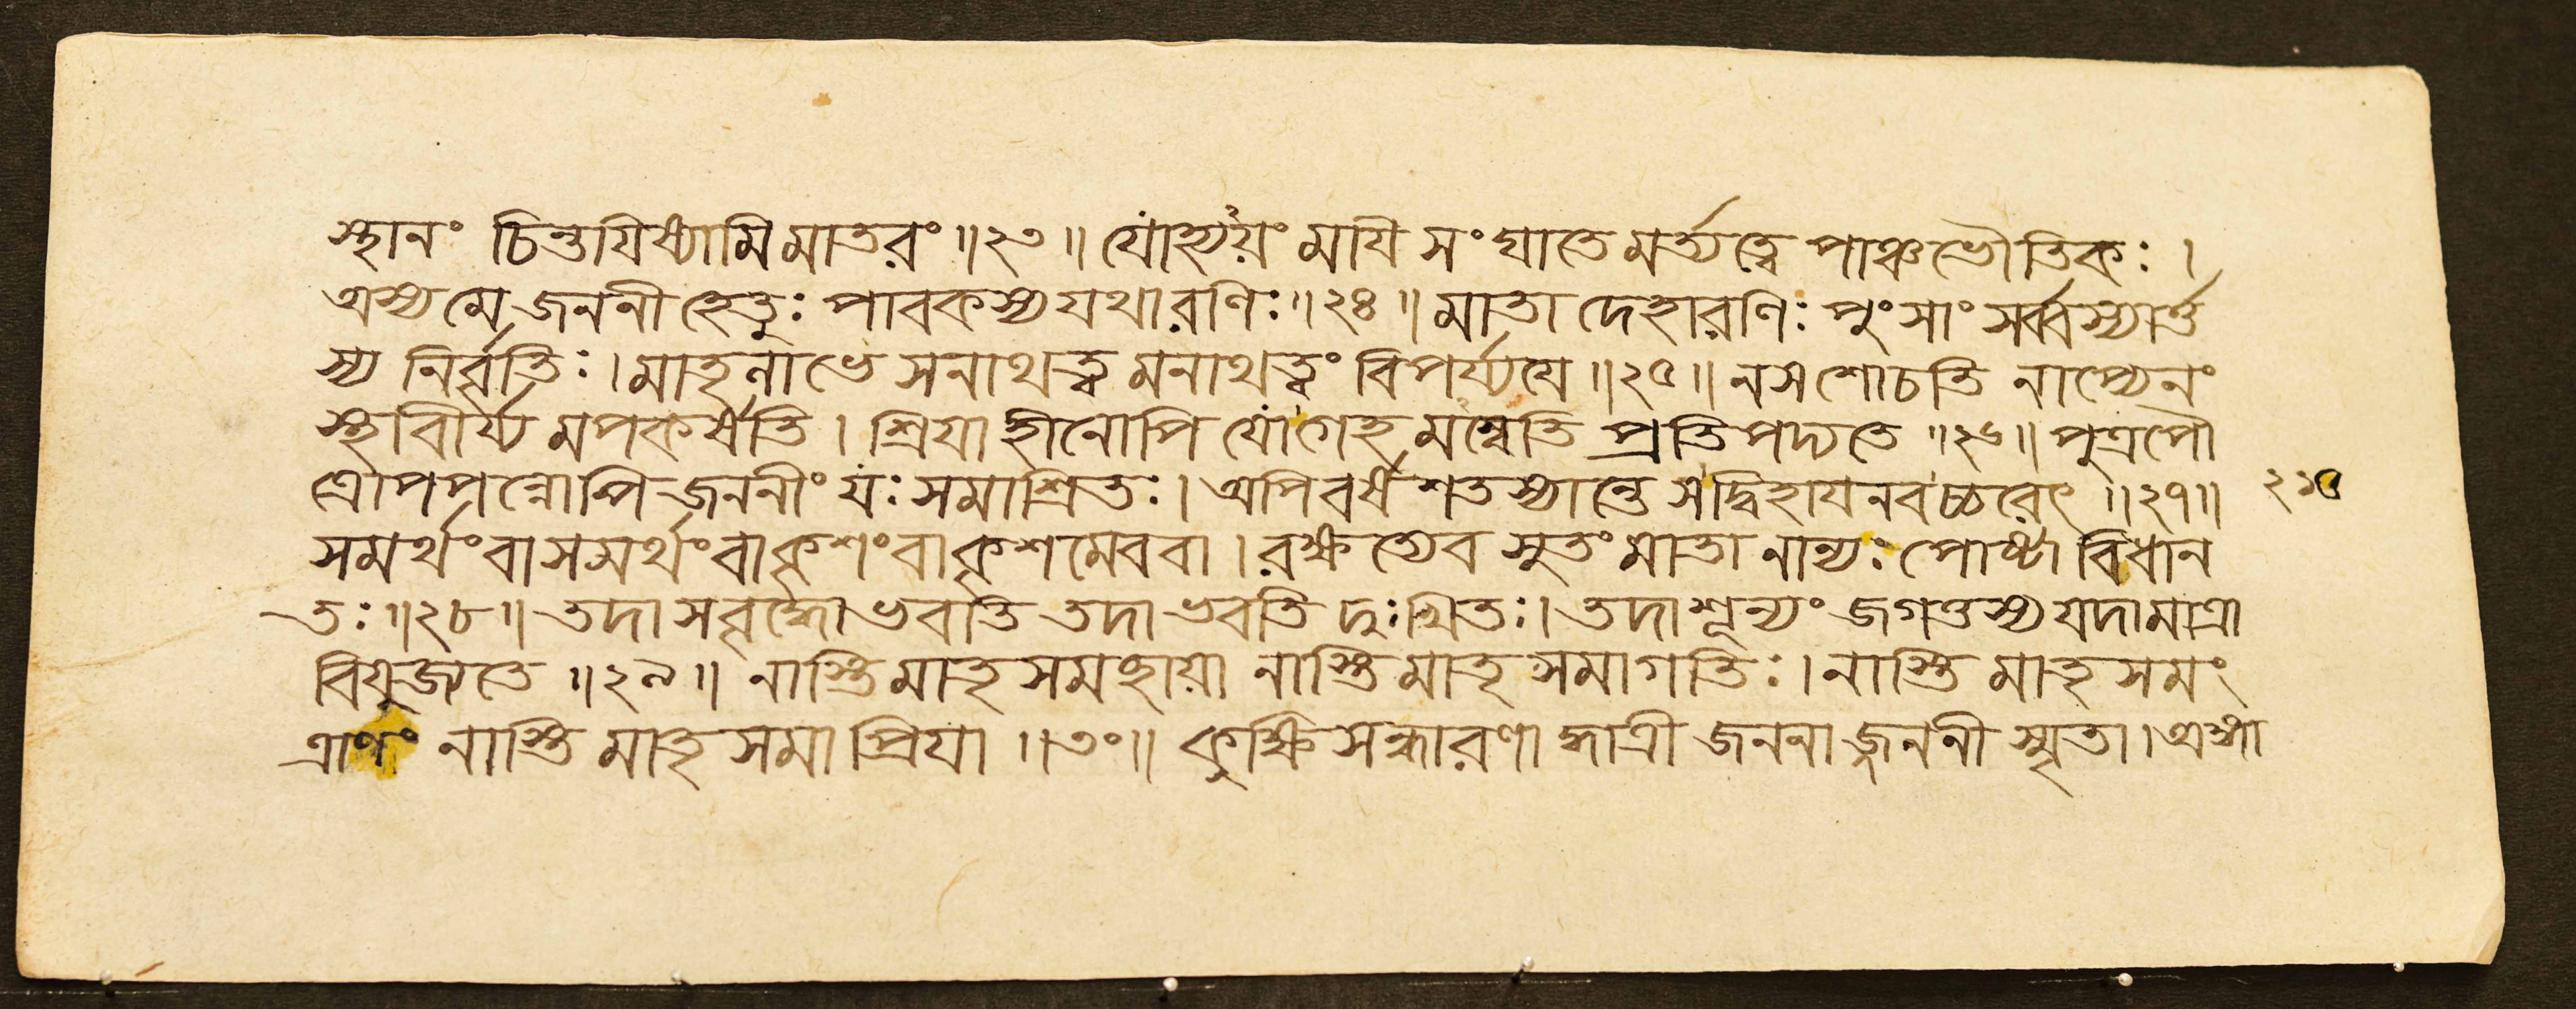 স্থানং চিন্তযিষ্যামি মাতরং ॥২৩॥ যোহ্যযং মযি সংঘাতে মর্ত্যত্বে পাঞ্চভৌতিকঃ ।
অস্য মে জননী হেতুঃ পাবকস্য যথারণিঃ ॥২৪॥ মাতা দেহারণিঃ পুংসাং সর্ব্বস্যার্ত্ত
স্য নির্বৃতিঃ । মাতৃলাভে সনাথত্বমনাথত্বং বিপর্য্যযে ॥২৫॥ ন স শোচতি নাপ্যেনং
স্থাবীর্য্যমপকর্ষতি । শ্রিযা হীনোপি যোগেহমম্বেতি প্রতিপদ্যতে ॥২৬॥ পুত্রপৌ
ত্রোপপন্নোপি জননীং যঃ সমাশ্রিতঃ । অপি বর্ষশতস্যান্তে স দ্বিহাযনবচ্চরেৎ ॥২৭॥
সমর্থং বাসমর্থং বা কৃশং বাকৃশমেব বা । রক্ষত্যেব সুতং মাতা নান্যঃ পোষ্টা বিধান
তঃ ॥২৮॥ তদা স বৃদ্ধো ভবতি তদা ভবতি দুঃখিতঃ । তদা শূন্যং জগত্তস্য যদা মাত্রা
বিযুজ্যতে ॥২৯॥ নাস্তি মাতৃসমচ্ছাযা নাস্তি মাতৃসমা গতিঃ । নাস্তি মাতৃসমং
ত্রাণং নাস্তি মাতৃসমা প্রিযা ॥৩০॥ কুক্ষিসন্ধারণাদ্ধাত্রী জননাজ্জননী স্মৃতা । অঙ্গা